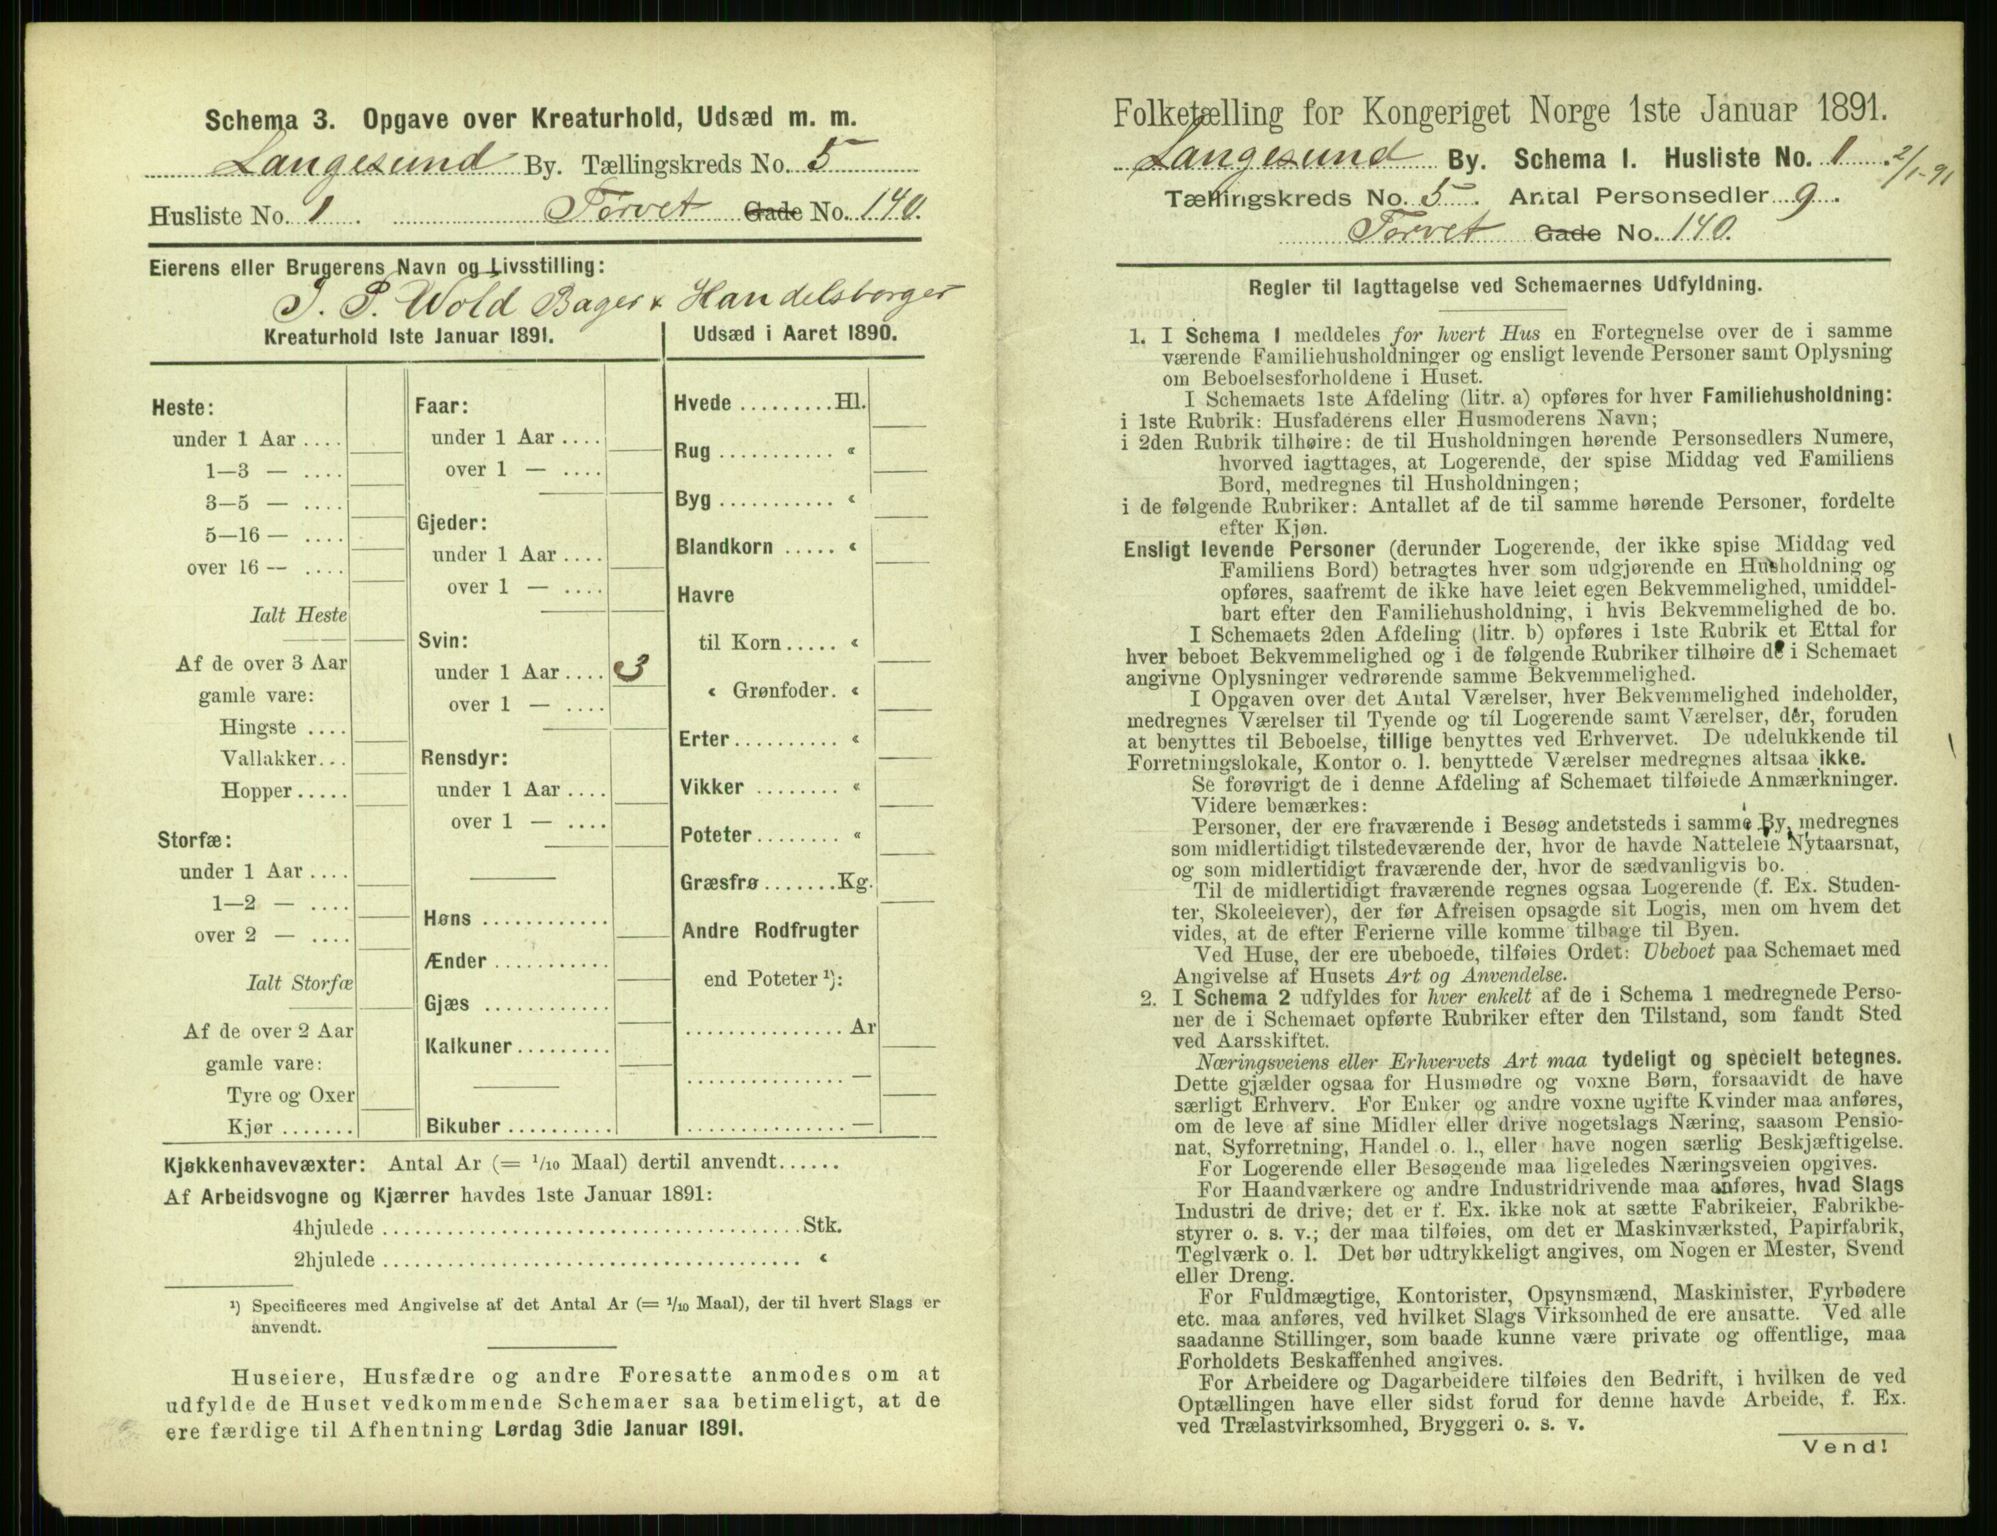 Schema 3. Opgave over Kreaturhold, Udsæd m. m.
Langesund By. Tællingskreds No. 5
Husliste No. 1. Torvet Gade No. 140.
Eierens eller Brugerens Navn og Livsstilling:
J. P. Wold Bager & Handelsborger
Kreaturhold 1ste Januar 1891.
Heste:
under 1 Aar ....
1—3 — ....
3—5 — ....
5—16 — ....
over 16 — ....
Ialt Heste
Af de over 3 Aar
gamle vare:
Hingste ....
Vallakker...
Hopper.....
Storfæ:
under 1 Aar ....
1—2 — ....
over 2 — ....
Ialt Storfæ
Af de over 2 Aar
gamle vare:
Tyre og Oxer
Kjør .......
Faar:
under 1 Aar ....
over 1 — ....
Gjeder:
under 1 Aar ....
over 1 — ....
Svin:
under 1 Aar .... 3
over 1 — ....
Rensdyr:
under 1 Aar ....
over 1 — ....
Høns ............
Ænder ...........
Gjæs ............
Kalkuner.........
Bikuber ..........
Udsæd i Aaret 1890.
Hvede .........Hl.
Rug ........... «
Byg ........... «
Blandkorn ..... «
Havre
til Korn..... «
« Grønfoder. «
Erter.......... «
Vikker ........ «
Poteter........ «
Græsfrø.......Kg.
Andre Rodfrugter
end Poteter ¹):
............... Ar
............... —
............... —
Kjøkkenhavevæxter: Antal Ar (= 1/10 Maal) dertil anvendt......
Af Arbeidsvogne og Kjærrer havdes 1ste Januar 1891:
4hjulede ........................................Stk.
2hjulede ........................................ «
¹) Specificeres med Angivelse af det Antal Ar (= 1/10 Maal), der til hvert Slags er
anvendt.
Huseiere, Husfædre og andre Foresatte anmodes om at
udfylde de Huset vedkommende Schemaer saa betimeligt, at de
ere færdige til Afhentning Lørdag 3die Januar 1891.
Folketælling for Kongeriget Norge 1ste Januar 1891.
Langesund By. Schema 1. Husliste No. 1. 2/1-91
Tællingskreds No. 5. Antal Personsedler 9.
Torvet Gade No. 140.
Regler til Iagttagelse ved Schemaernes Udfyldning.
1. I Schema 1 meddeles for hvert Hus en Fortegnelse over de i samme
værende Familiehusholdninger og ensligt levende Personer samt Oplysning
om Beboelsesforholdene i Huset.
I Schemaets 1ste Afdeling (litr. a) opføres for hver Familiehusholdning:
i 1ste Rubrik: Husfaderens eller Husmoderens Navn;
i 2den Rubrik tilhøire: de til Husholdningen hørende Personsedlers Numere,
hvorved iagttages, at Logerende, der spise Middag ved Familiens
Bord, medregnes til Husholdningen;
i de følgende Rubriker: Antallet af de til samme hørende Personer, fordelte
efter Kjøn.
Ensligt levende Personer (derunder Logerende, der ikke spise Middag ved
Familiens Bord) betragtes hver som udgjørende en Husholdning og
opføres, saafremt de ikke have leiet egen Bekvemmelighed, umiddel-
bart efter den Familiehusholdning, i hvis Bekvemmelighed de bo.
I Schemaets 2den Afdeling (litr. b) opføres i 1ste Rubrik et Ettal for
hver beboet Bekvemmelighed og i de følgende Rubriker tilhøire de i Schemaet
angivne Oplysninger vedrørende samme Bekvemmelighed.
I Opgaven over det Antal Værelser, hver Bekvemmelighed indeholder,
medregnes Værelser til Tyende og til Logerende samt Værelser, der, foruden
at benyttes til Beboelse, tillige benyttes ved Erhvervet. De udelukkende til
Forretningslokale, Kontor o. l. benyttede Værelser medregnes altsaa ikke.
Se forøvrigt de i denne Afdeling af Schemaet tilføiede Anmærkninger.
Videre bemærkes:
Personer, der ere fraværende i Besøg andetsteds i samme By, medregnes
som midlertidigt tilstedeværende der, hvor de havde Natteleie Nytaarsnat,
og som midlertidigt fraværende der, hvor de sædvanligvis bo.
Til de midlertidigt fraværende regnes ogsaa Logerende (f. Ex. Studen-
ter, Skoleelever), der før Afreisen opsagde sit Logis, men om hvem det
vides, at de efter Ferierne ville komme tilbage til Byen.
Ved Huse, der ere ubeboede, tilføies Ordet: Ubeboet paa Schemaet med
Angivelse af Husets Art og Anvendelse.
2. I Schema 2 udfyldes for hver enkelt af de i Schema 1 medregnede Perso-
ner de i Schemaet opførte Rubriker efter den Tilstand, som fandt Sted
ved Aarsskiftet.
Næringsveiens eller Erhvervets Art maa tydeligt og specielt betegnes.
Dette gjælder ogsaa for Husmødre og voxne Børn, forsaavidt de have
særligt Erhverv. For Enker og andre voxne ugifte Kvinder maa anføres,
om de leve af sine Midler eller drive nogetslags Næring, saasom Pensio-
nat, Syforretning, Handel o. l., eller have nogen særlig Beskjæftigelse.
For Logerende eller Besøgende maa ligeledes Næringsveien opgives.
For Haandværkere og andre Industridrivende maa anføres, hvad Slags
Industri de drive; det er f. Ex. ikke nok at sætte Fabrikeier, Fabrikbe-
styrer o. s. v.; der maa tilføies, om det er Maskinværksted, Papirfabrik,
Teglværk o. l. Det bør udtrykkeligt angives, om Nogen er Mester, Svend
eller Dreng.
For Fuldmægtige, Kontorister, Opsynsmænd, Maskinister, Fyrbødere
etc. maa anføres, ved hvilket Slags Virksomhed de ere ansatte. Ved alle
saadanne Stillinger, som baade kunne være private og offentlige, maa
Forholdets Beskaffenhed angives.
For Arbeidere og Dagarbeidere tilføies den Bedrift, i hvilken de ved
Optællingen have eller sidst forud for denne havde Arbeide, f. Ex.
ved Trælastvirksomhed, Bryggeri o. s. v.
Vend!